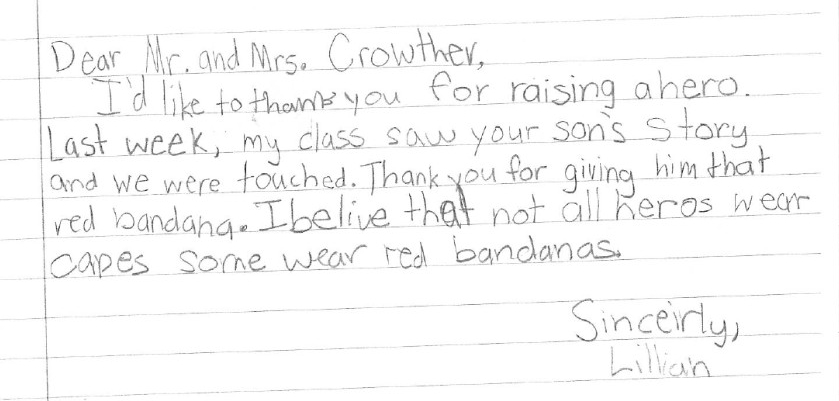 Dear Mr. and Mrs. Crowther,
I'd like to thank you for raising a hero.
Last week, my class saw your son's story
and we were touched. Thank you for giving him that
red bandana. I belive that not all heros wear
capes some wear red bandanas.
Sinceirly,
Lillian